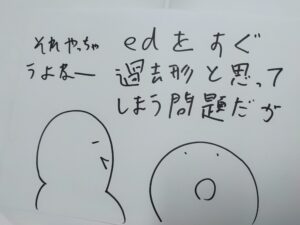 edをすぐ
過去形と思って
しまう問題だが
それやっちゃ
うよなー